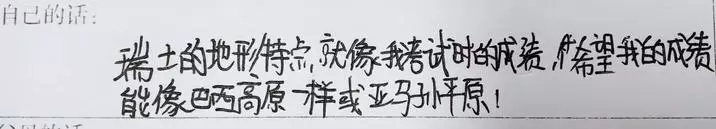 自己的话:
瑞士的地形特点,就像我考试时的成绩,希望我的成绩
能像巴西高原一样或亚马孙平原!